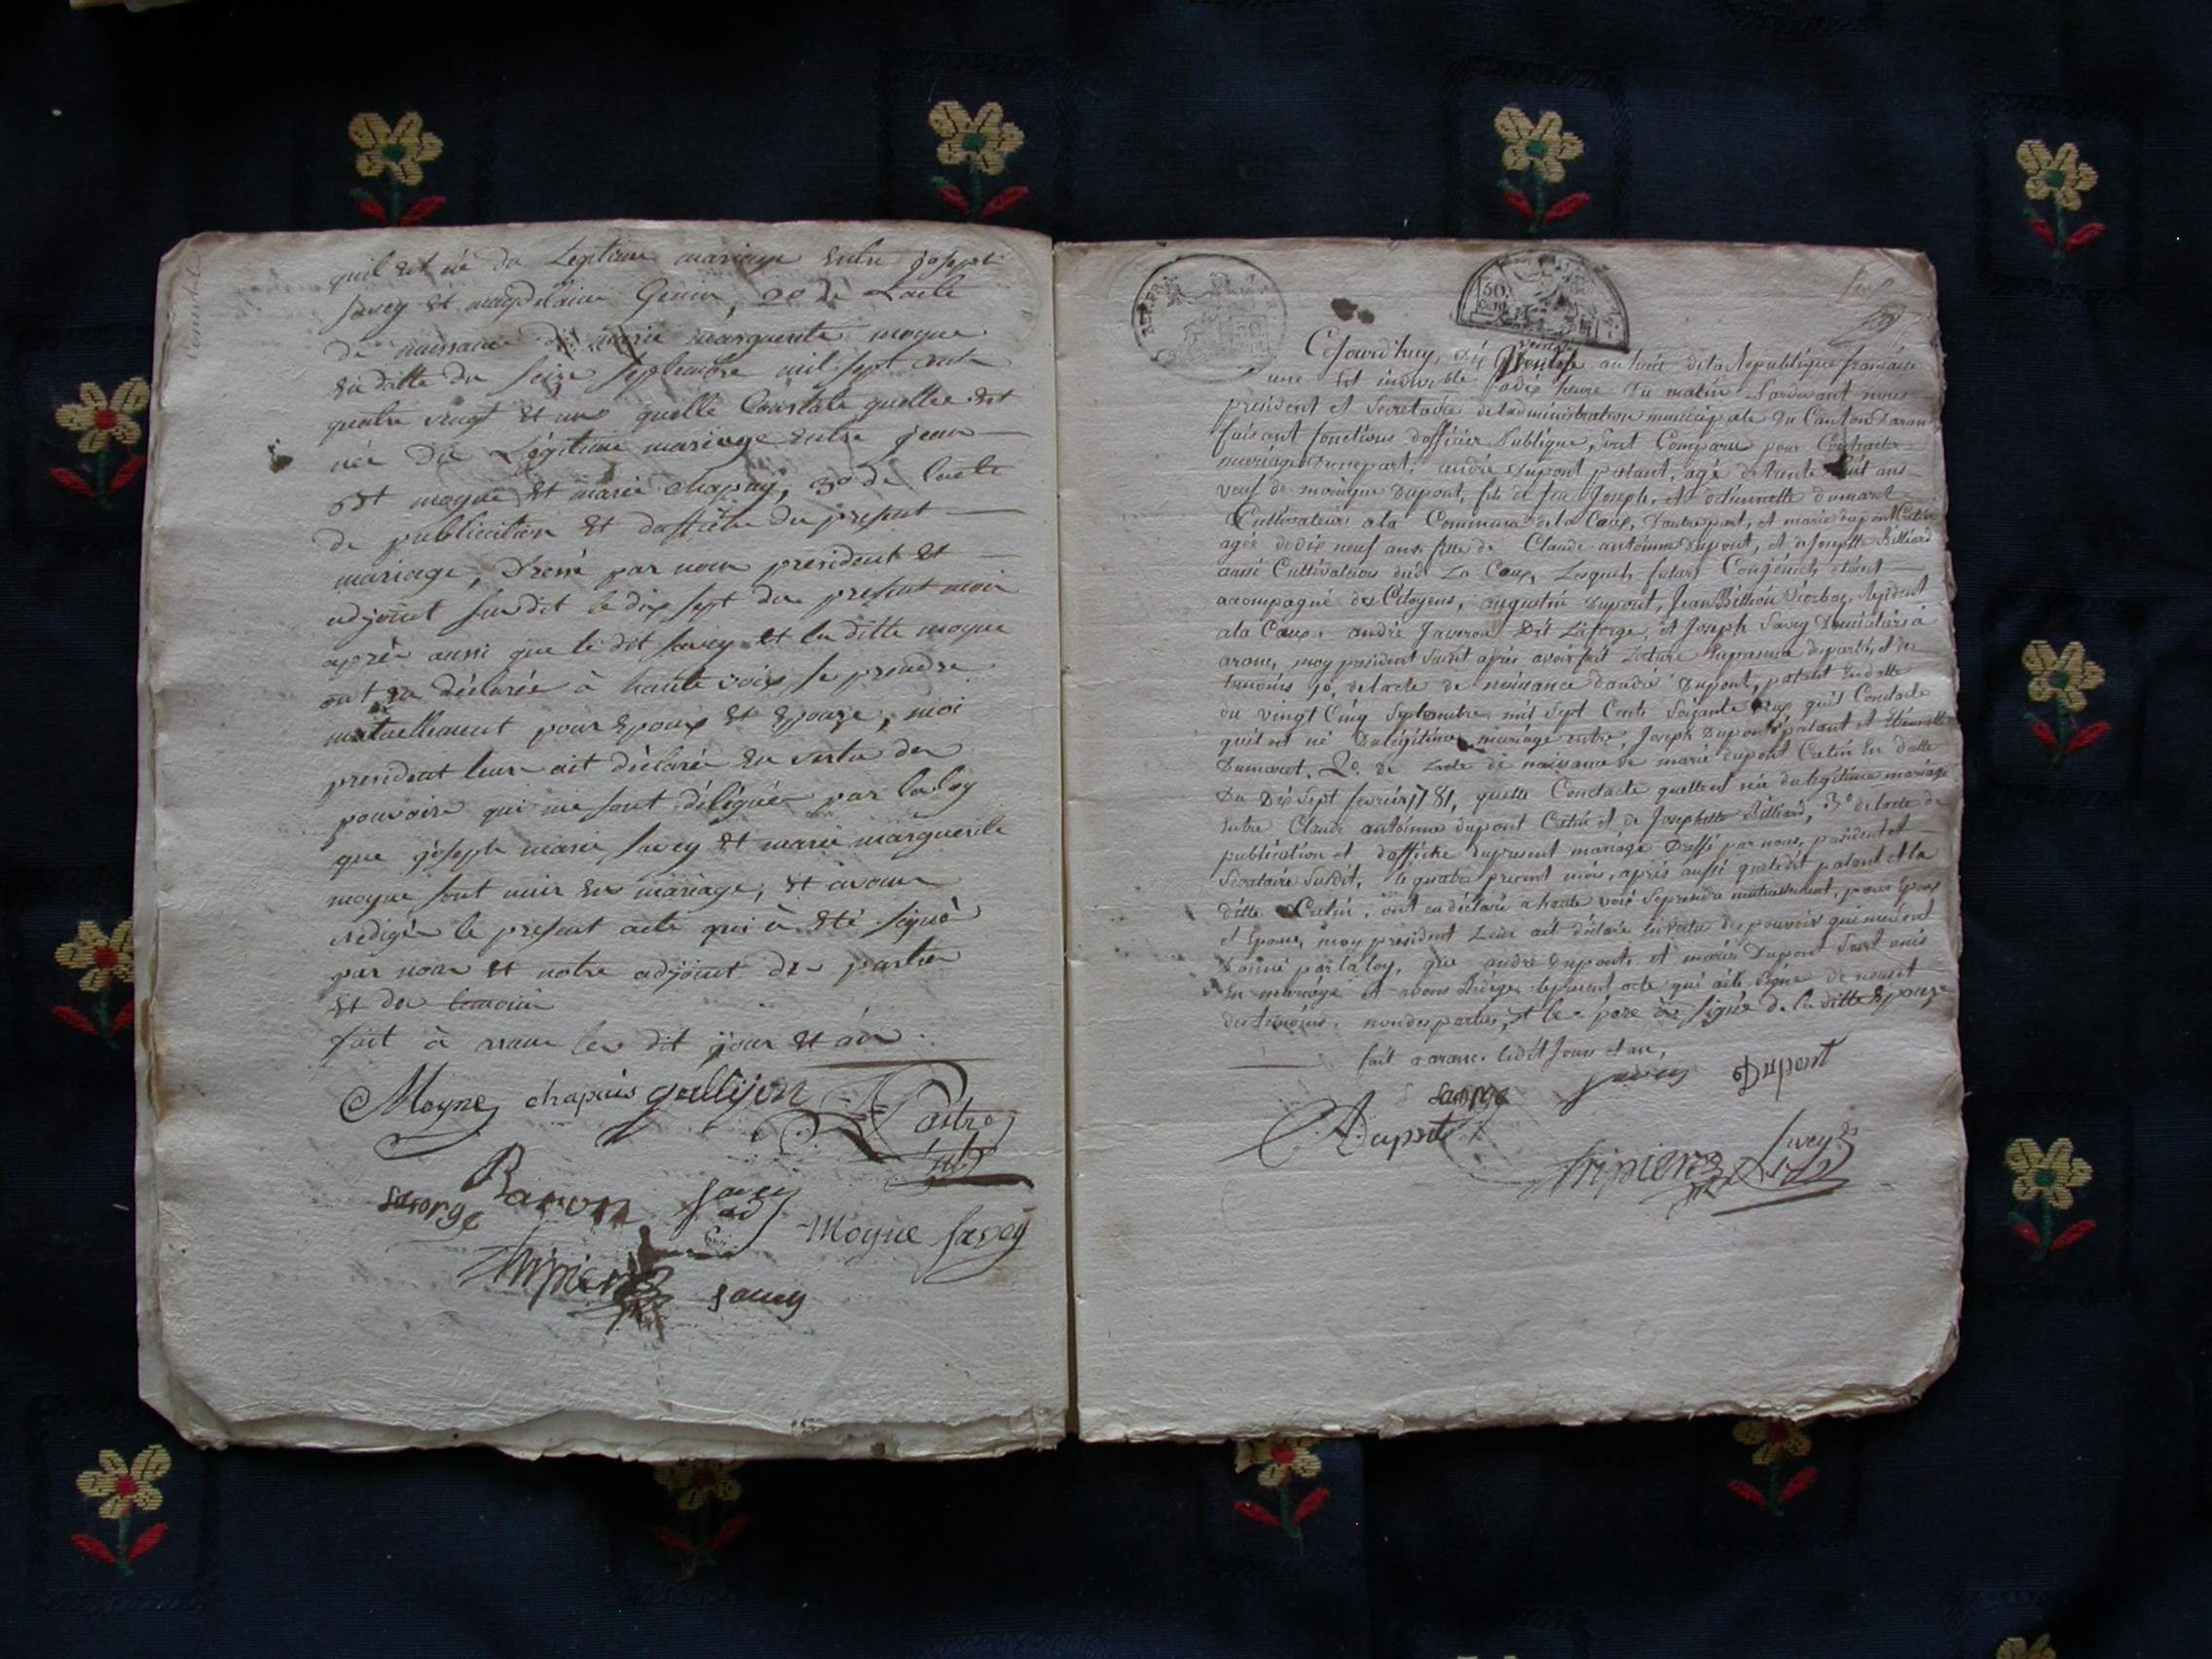 quil est né du Legitime mariage entre joseph
savey et magdelaine Genin, 2o de Lacte
de naissance de marie marguerite moyne
en datte du seize septembre mil sept cent
quatre vingt et un quelle Constate quelle est
née du Légitime mariage entre jean
moyne et marie chapuy, 3o de lacte
de publication et daffiche du present
mariage, Dressé par nous president et
adjoint susdit le dix sept du present mois
après aussi que le dit savey et la ditte moyne
ont eu déclarée à haute voix se prendre
mutuellement pour Epoux et Epouze, moi
president leur ait déclarée en vertu des
pouvoirs qui me sont délégués par la loy
que joseph marie savey et marie marguerite
moyne sont unis en mariage, et avons
redigés le present acte qui à été signé
par nous et notre adjoint des parties
et des temoins
fait à aranc les dit jour et an
Moyne chapuis gallijon
Ravon savey
Laforge
Moyne savey
Tripier savey
RÉP. FRA
50
50
Cejourdhuy, Dix Ventose an huit de la Republique francaise
une et indivisible a dix heure du matin Pardevant nous
president et Secretaire de ladministration municipale du Canton Daranc
faisant fonctions dofficier Publique, sont Comparu pour Contracter
mariage Dunepart, andré Dupont patant, agé de trente huit ans
veuf de monique Dupont, fils de feu Joseph, et detiennette dumaret
Cultivateurs a la Commune de la Coux, Dautrepart, et marie dupont Cretin
agée de dix neuf ans fille de Claude antoinne Dupont, et de Josephte Billiard
aussi Cultivateurs dud. La Coux, Lesquels futurs Conjoints étant
acompagné des Citoyens, augustin Dupont, Jean Billion Resident
a la Coux, andré Javeron Dit Laforge, et Joseph Savey Domiciliers à
aranc, moy president susdit après avoir fait Lecture En presence des parties, et des
temoins 1o, de lacte de naissance dandré Dupont, patant En datte
du vingt Cinq Septembre mil Sept Cents Soixante quil Constate
quil est né Dulégitime mariage entre Joseph Dupont patant et Etiennette
Dumaret. 2o. de Lacte de naissance de marie dupont Cretin En datte
Du Dix Sept fevrier 1781, quelle Constate quelle est née du legitime mariage
Entre Claude antoinne dupont Cretin et de Josephte Billiard, 3o de lacte de
publication et daffiche dupresent mariage Dressé par nous, president et
Secretaire Susdit, le quatre present mois, après aussi que ledit patant et la
ditte Cretin, ont eu déclaré a haute voix Seprendre mutuellement, pour Epoux
et Epouse, moy president Leur ait déclaré en vertu des pouvoirs qui me sont
Donné par la loy, que andré Dupont et marie Dupont Sont unis
En mariage et avons Rédigé lepresent acte qui a été Signé de nous et
des temoins, non des parties, et le père à signé de la ditte Epouze
fait a aranc. ledit Jour et an,
Laforge savey Dupont
ADupont
Tripier Savey